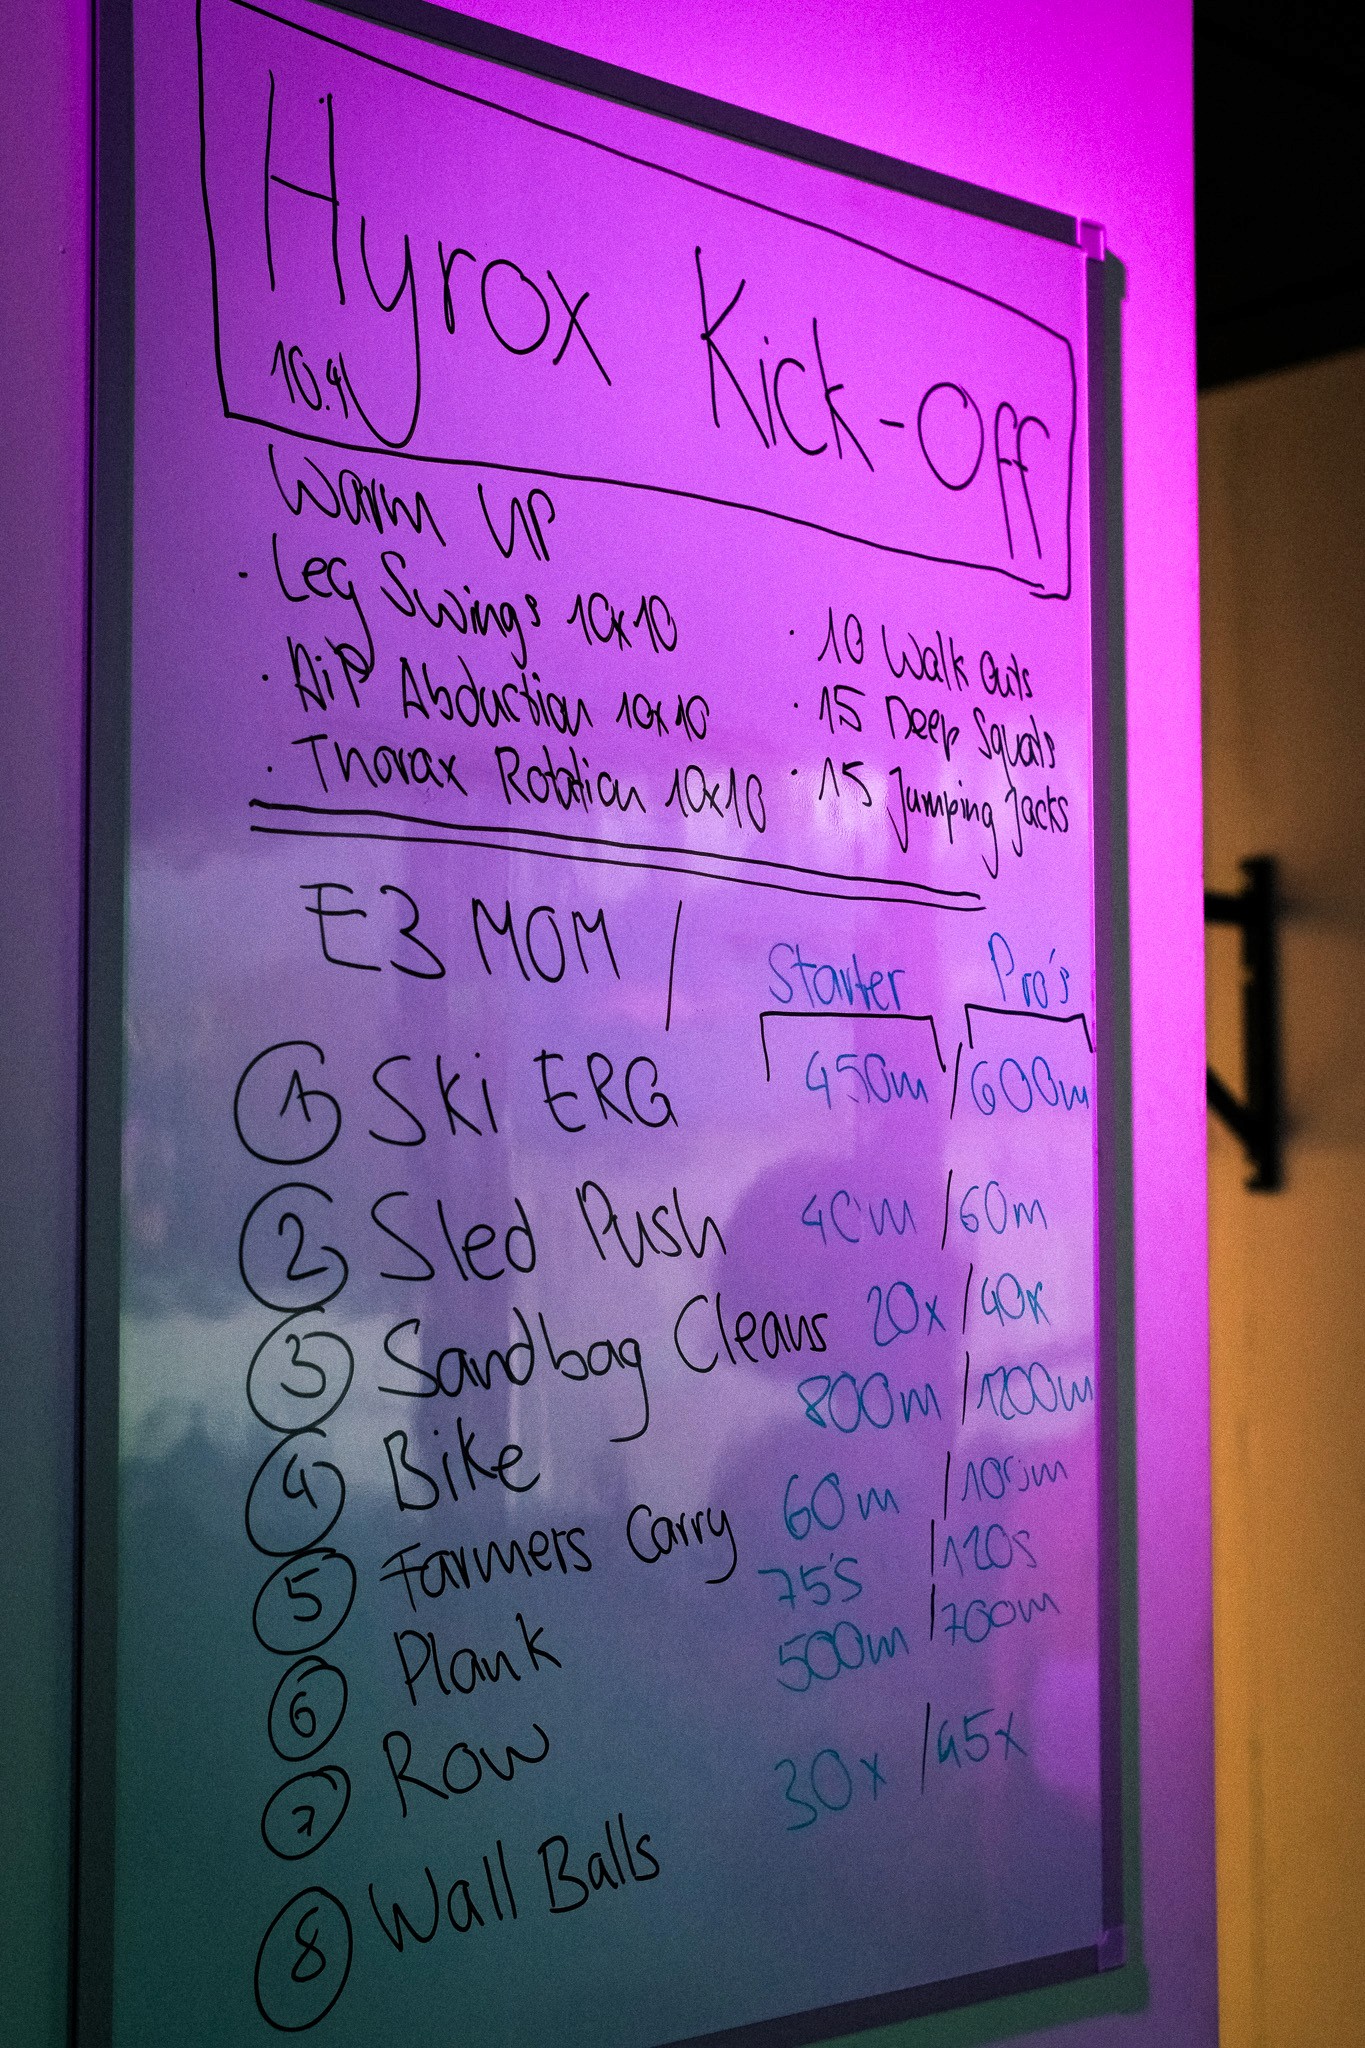 Hyrox Kick-Off
10.4
Warm UP
· Leg Swings 10x10
· Hip Abduction 10x10
· Thorax Rotation 10x10
· 10 Walk Outs
· 15 Deep Squats
· 15 Jumping Jacks
E3 MOM /
Starter Pro's
1 Ski ERG 450m / 600m
2 Sled Push 40m / 60m
3 Sandbag Cleans 20x / 40x
4 Bike 800m / 1200m
5 Farmers Carry 60m /
6 Plank 75s / 120s
7 Row 500m / 700m
8 Wall Balls 30x / 45x